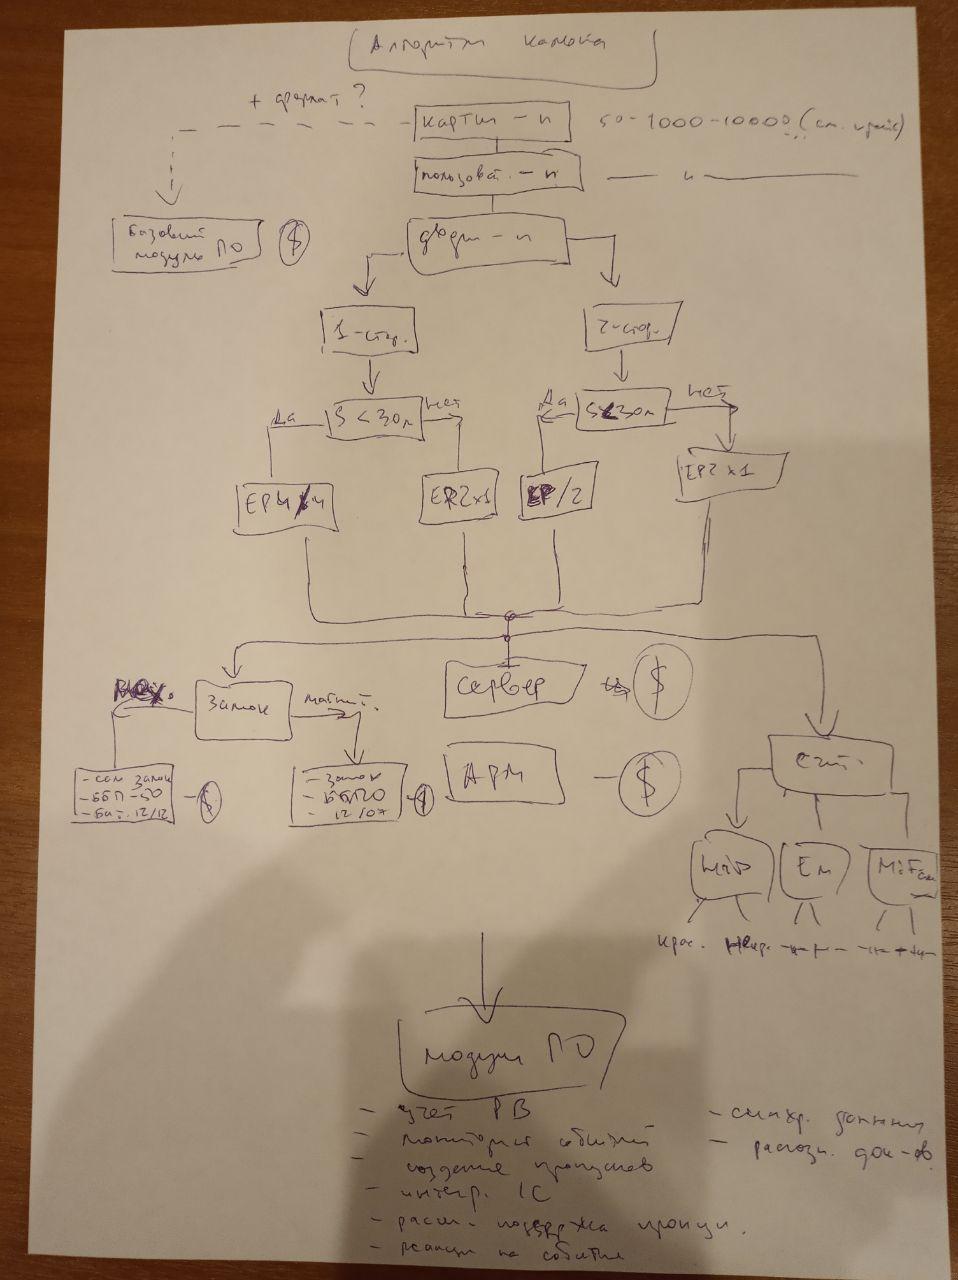 Алгоритм
+ формат?
карты - n
50-1000-10000 (см. прайс)
пользоват. - n
— " —
Базовый
модуль ПО
$
двери - n
1-стор.
2-стор.
Да
S < 30м
нет
Да
S<30м
нет
EP4/4
ER2x1
EP/2
EP2x1
Мех.
Замок
магнит.
сервер
$
- сам замок
- ББП-50
- Бат. 12/12
- $
- Замок
- ББП20
- 12/07
- $
АРМ
- $
Счит.
HiD
Em
MiFare
крас.
Некр.
модули ПО
- учет РВ
- мониторинг событий
- создание пропусков
- интегр. 1С
- расш. поддержка
- реакции на события
- синхр. данных
- распозн. док-ов